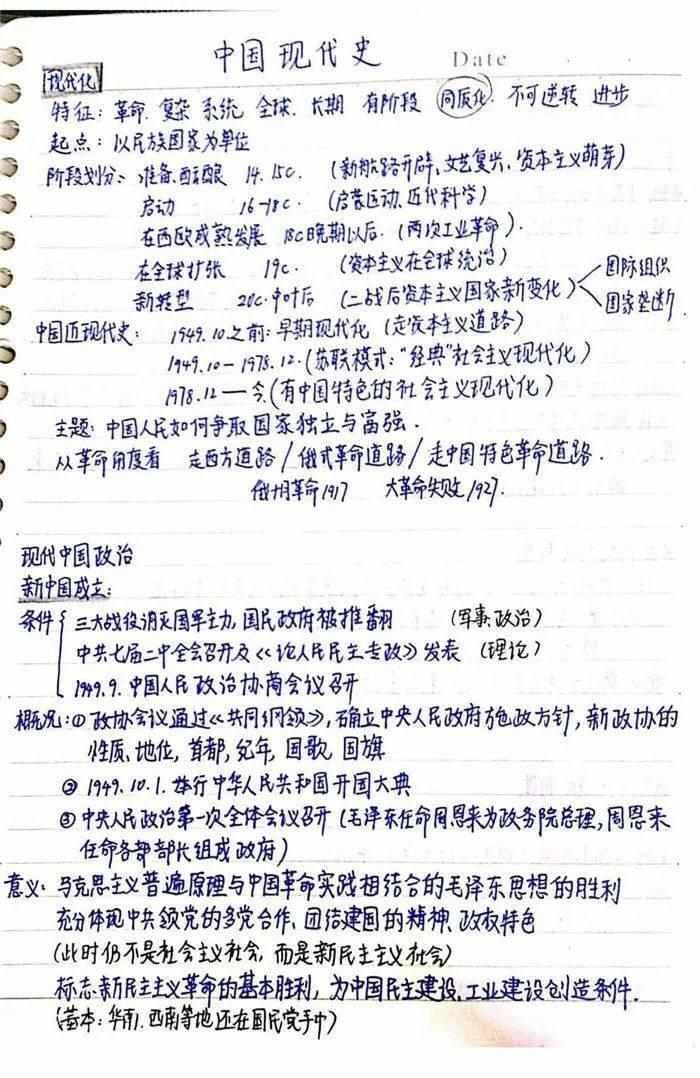 中国现代史 Date
现代化
特征：革命. 复杂 系统 全球. 长期 有阶段 同质化. 不可逆转 进步
起点：以民族国家为单位
阶段划分：准备.酝酿 14.15C. (新航路开辟、文艺复兴、资本主义萌芽)
启动 16-18C. (启蒙运动.近代科学)
在西欧成熟发展 18C晚期以后. (两次工业革命).
在全球扩张 19C. (资本主义在全球统治)
新转型 20C.中叶后 (二战后资本主义国家新变化) 国际组织
国家垄断.
中国近现代史： 1949.10之前：早期现代化 (走资本主义道路)
1949.10-1978.12.(苏联模式："经典"社会主义现代化)
1978.12—今.(有中国特色的社会主义现代化)
主题：中国人民如何争取国家独立与富强.
从革命角度看 走西方道路/俄式革命道路/走中国特色革命道路.
俄十月革命1917 大革命失败1927.
现代中国政治
新中国成立：
条件 三大战役消灭国军主力,国民政府被推翻 (军事.政治)
中共七届二中全会召开及《论人民民主专政》发表 (理论)
1949.9.中国人民政治协商会议召开
概况：①政协会议通过《共同纲领》,确立中央人民政府施政方针,新政协的
性质,地位,首都,纪年,国歌,国旗
② 1949.10.1.举行中华人民共和国开国大典
③ 中央人民政治第一次全体会议召开 (毛泽东任命周恩来为政务院总理,周恩来
任命各部部长组成政府)
意义：马克思主义普遍原理与中国革命实践相结合的毛泽东思想的胜利
充分体现中共领党的多党合作、团结建国的精神、政权特色
(此时仍不是社会主义社会,而是新民主主义社会)
标志新民主主义革命的基本胜利,为中国民主建设.工业建设创造条件.
(基本：华南.西南等地还在国民党手中)